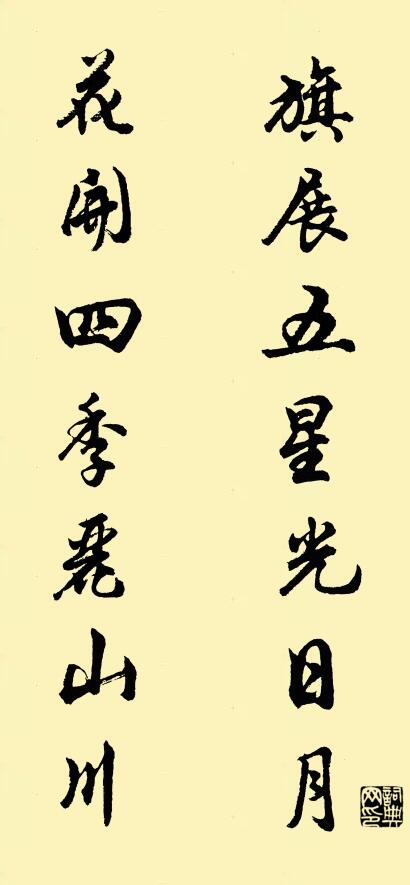 旗展五星光日月
花開四季麗山川
詞典網印